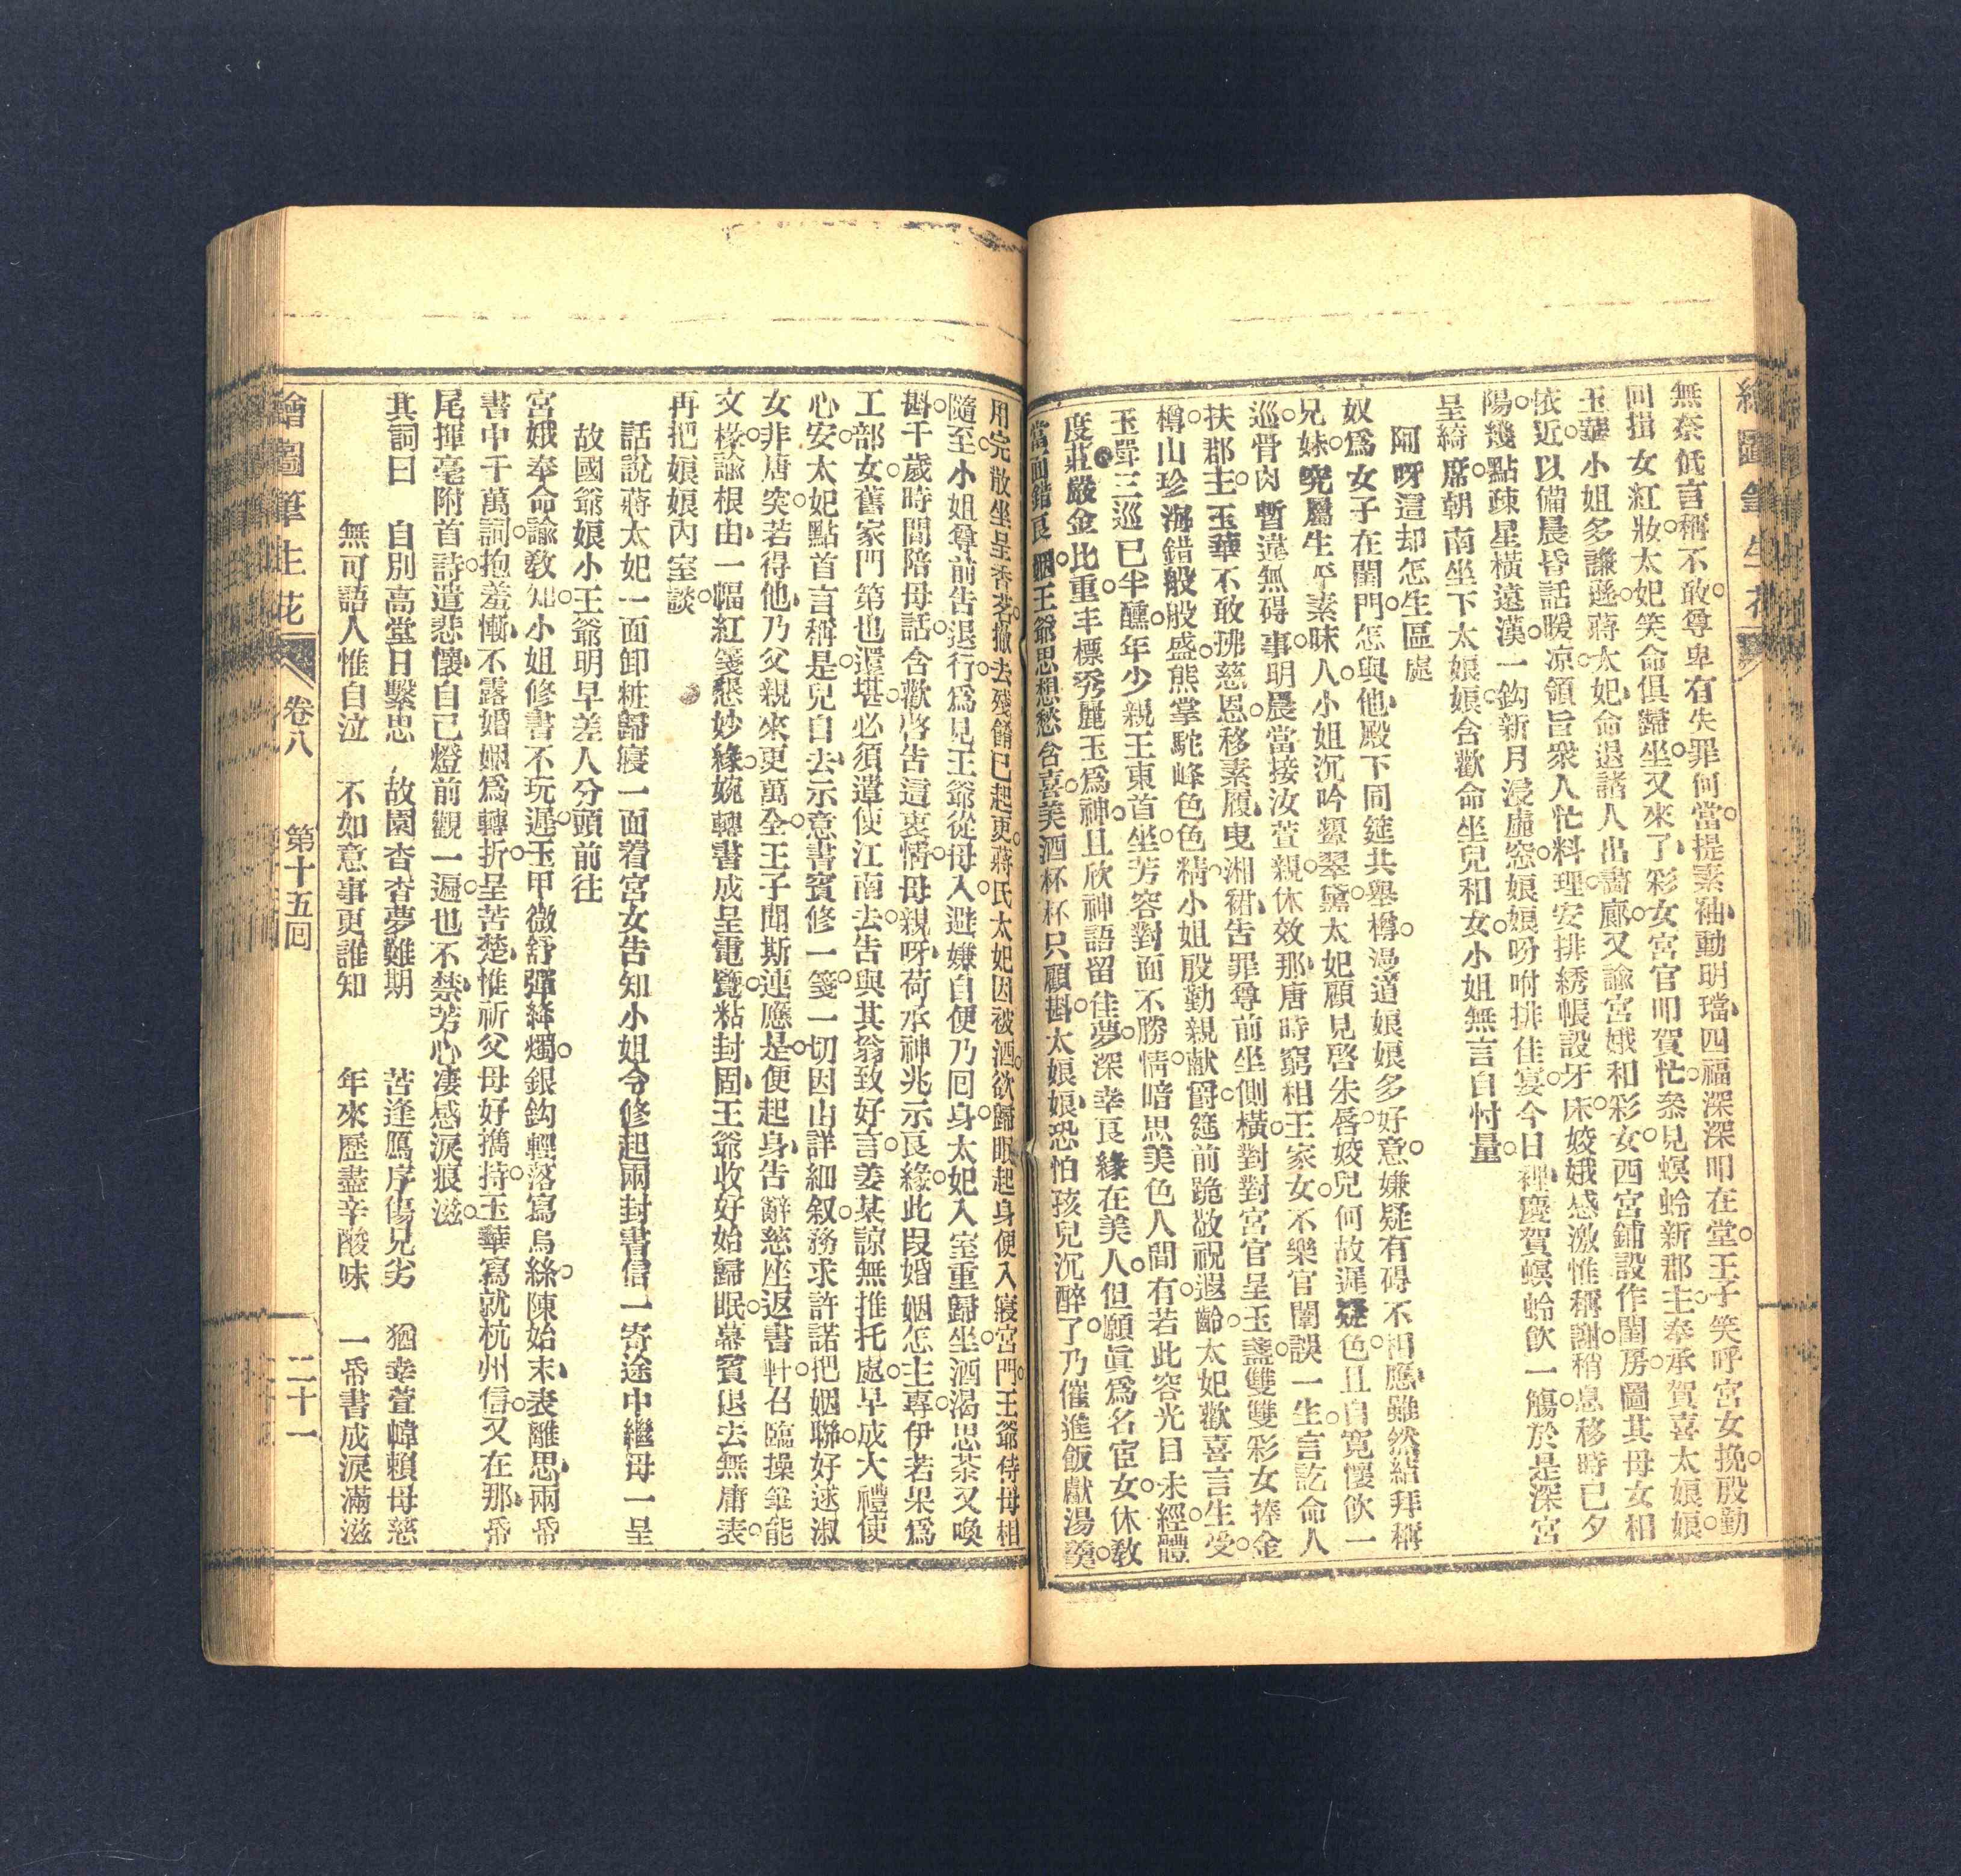 繪圖筆生花
無奈低言稱不敢。尊卑有失罪何當。提素袖、動明璫。四福深深叩在堂。王子笑呼宮女挽。殷勤
回揖女紅妝。太妃笑命俱歸坐。又來了、彩女宮官叩賀忙。叅見螟蛉新郡主。奉承賀喜太娘娘。
玉華小姐多謙遜。蔣太妃、命退諸人出畵廊。又諭宮娥和彩女。西宮鋪設作閨房。圖其母女相
依近。以備晨昏話暖凉。領旨衆人忙料理。安排綉帳設牙床。姣娥感激惟稱謝。稍息移時已夕
陽。幾點疎星橫遠漢。一鈎新月浸虛窓。娘娘吩咐排佳宴。今日裡、慶賀螟蛉飲一觴。於是深宮
呈綺席。朝南坐下太娘娘。含歡命坐兒和女。小姐無言自忖量。
阿呀這却怎生區處
奴爲女子在閨門。怎與他、殿下同筵共舉樽。漫道娘娘多好意。嫌疑有碍不相應。雖然結拜稱
兄妹。究屬生平素昧人。小姐沉吟顰翠黛。太妃顧見啓朱唇。姣兒何故遲疑色。且自寬懷飲一
巡。骨肉暫違無碍事。明晨當接汝萱親。休效那、唐時窮相王家女。不樂官闈誤一生。言訖命人
扶郡主。玉華不敢拂慈恩。移素履、曳湘裙。告罪尊前坐側橫。對對宮官呈玉盞。雙雙彩女捧金
樽。山珍海錯般般盛。熊掌駝峰色色精。小姐殷勤親献爵。筵前跪敬祝遐齡。太妃歡喜言生受。
玉斝三巡已半醺。年少親王東首坐。芳容對面不勝情。暗思美色人間有。若此容光目未經。體
度莊嚴金比重。丰標秀麗玉爲神。且欣神語留佳夢。深幸良緣在美人。但願眞爲名宦女。休敎
當面錯良姻。王爺思想愁含喜。美酒杯杯只顧斟。太娘娘、恐怕孩兒沉醉了。乃催進飯獻湯羮。
用完散坐呈香茗。撤去殘餚已起更。蔣氏太妃因被酒。欲歸眠起身便入寢宮門。王爺侍母相
隨至。小姐尊前告退行。爲見王爺從母入。避嫌自便乃回身。太妃入室重歸坐。酒渴思茶又喚
斟。千歲時間陪母話。含歡啓告這衷情。母親呀、荷承神兆示良緣。此段婚姻怎主專。伊若果爲
工部女。舊家門第也還堪。必須遣使江南去。告與其翁致好言。姜某諒無推托處。早成大禮使
心安。太妃點首言稱是。兒自去、示意書賓修一箋。一切因由詳細叙。務求許諾把姻聯。好逑淑
女非唐突。若得他、乃父親來更萬全。王子聞斯連應是。便起身、告辭慈座返書軒。召臨操筆能
文椽。諭根由、一幅紅箋懇妙緣。婉轉書成呈電覽。粘封固、王爺收好始歸眠。幕賓退去無庸表。
再把娘娘內室談。
話說蔣太妃一面卸粧歸寢一面着宮女告知小姐令修起兩封書信一寄途中繼母一呈
故國爺娘小王爺明早差人分頭前往
宮娥奉命諭敎知。小姐修書不玩遲。玉甲微舒彈絳燭。銀鈎輕落寫烏絲。陳始末、表離思。兩帋
書中千萬詞。抱羞慚、不露婚姻爲轉折。呈苦楚、惟祈父母好撝持。玉華寫就杭州信。又在那、帋
尾揮毫附首詩。遣悲懷、自己燈前觀一遍。也不禁、芳心凄感淚痕滋。
其詞曰　自別高堂日繫思　故園杳杳夢難期　苦逢鴈序傷兄劣　猶幸萱幃賴母慈
無可語人惟自泣　不如意事更誰知　年來歷盡辛酸味　一帋書成淚滿滋
繪圖筆生花　卷八　第十五回　二十一